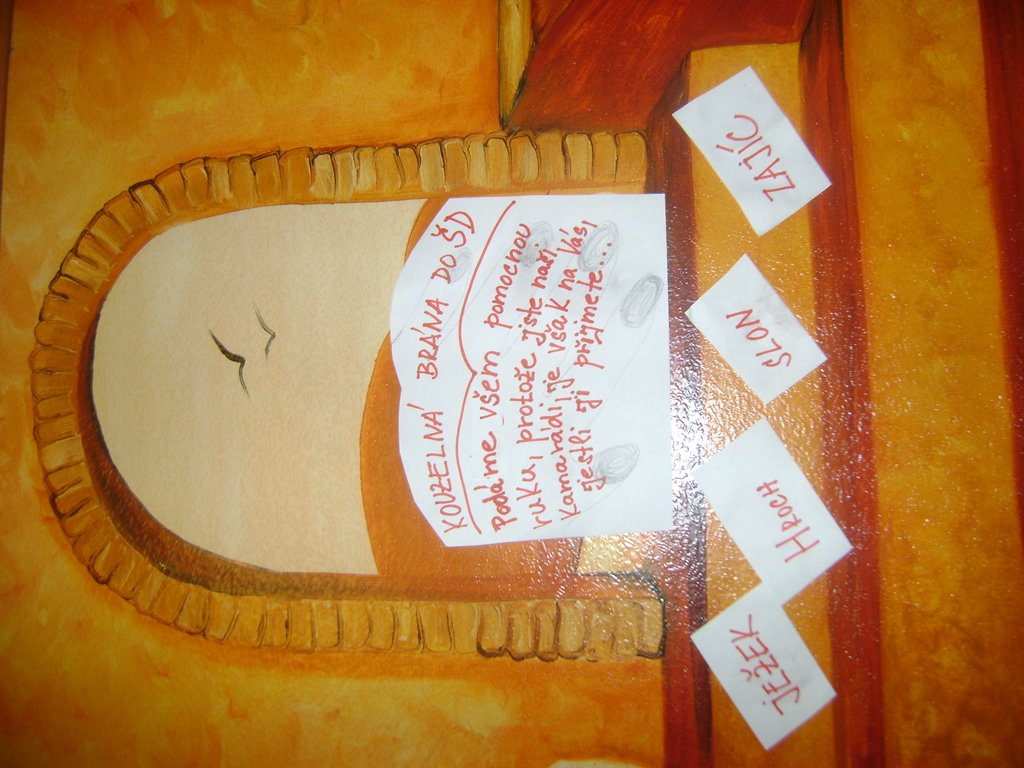 KOUZELNÁ BRÁNA DO ŠD
Podáme všem pomocnou
ruku, protože jste naši
kamarádi, je však na Vás,
jestli ji přijmete...
JEŽEK
HROCH
SLON
ZAJÍC